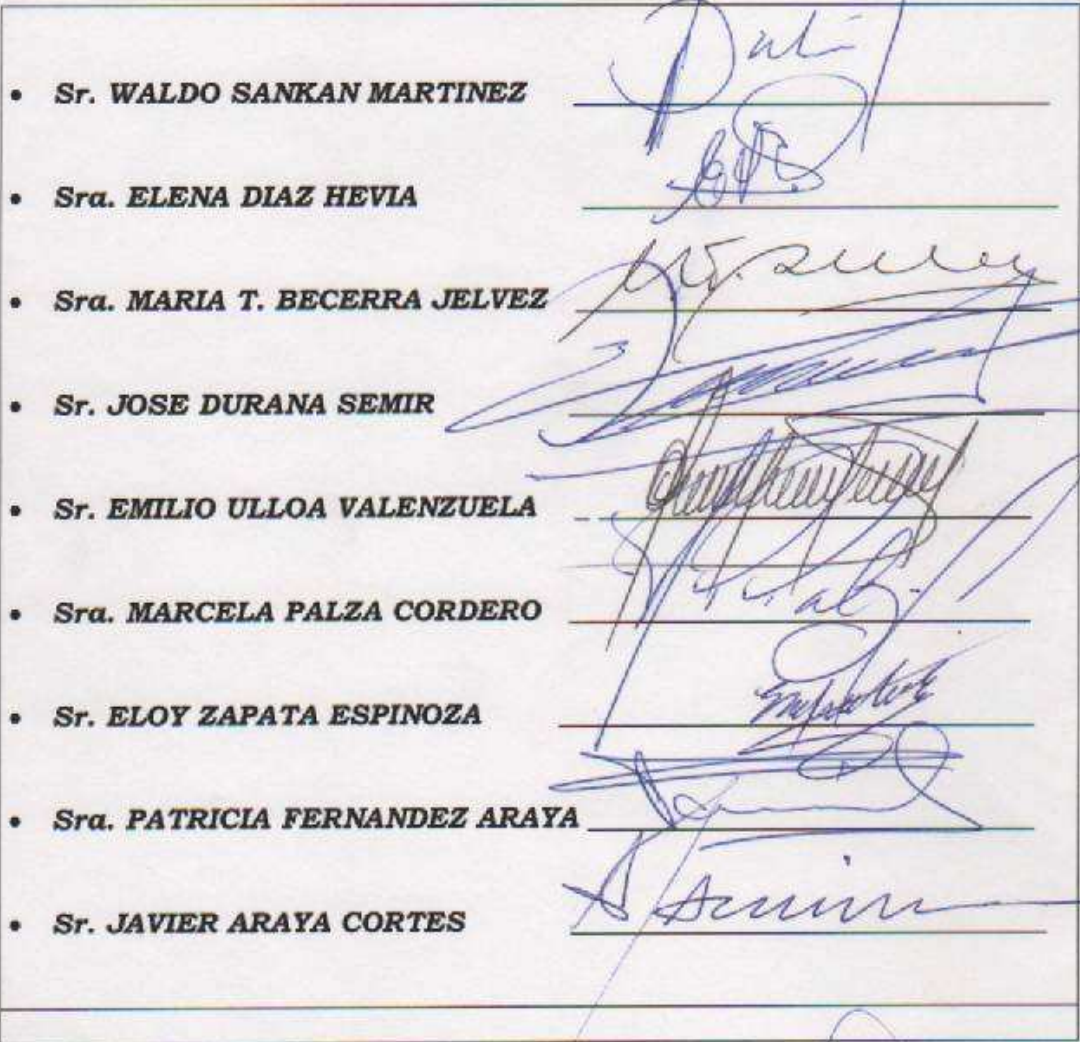 • Sr. WALDO SANKAN MARTINEZ
• Sra. ELENA DIAZ HEVIA
• Sra. MARIA T. BECERRA JELVEZ
• Sr. JOSE DURANA SEMIR
• Sr. EMILIO ULLOA VALENZUELA
• Sra. MARCELA PALZA CORDERO
• Sr. ELOY ZAPATA ESPINOZA
• Sra. PATRICIA FERNANDEZ ARAYA
• Sr. JAVIER ARAYA CORTES